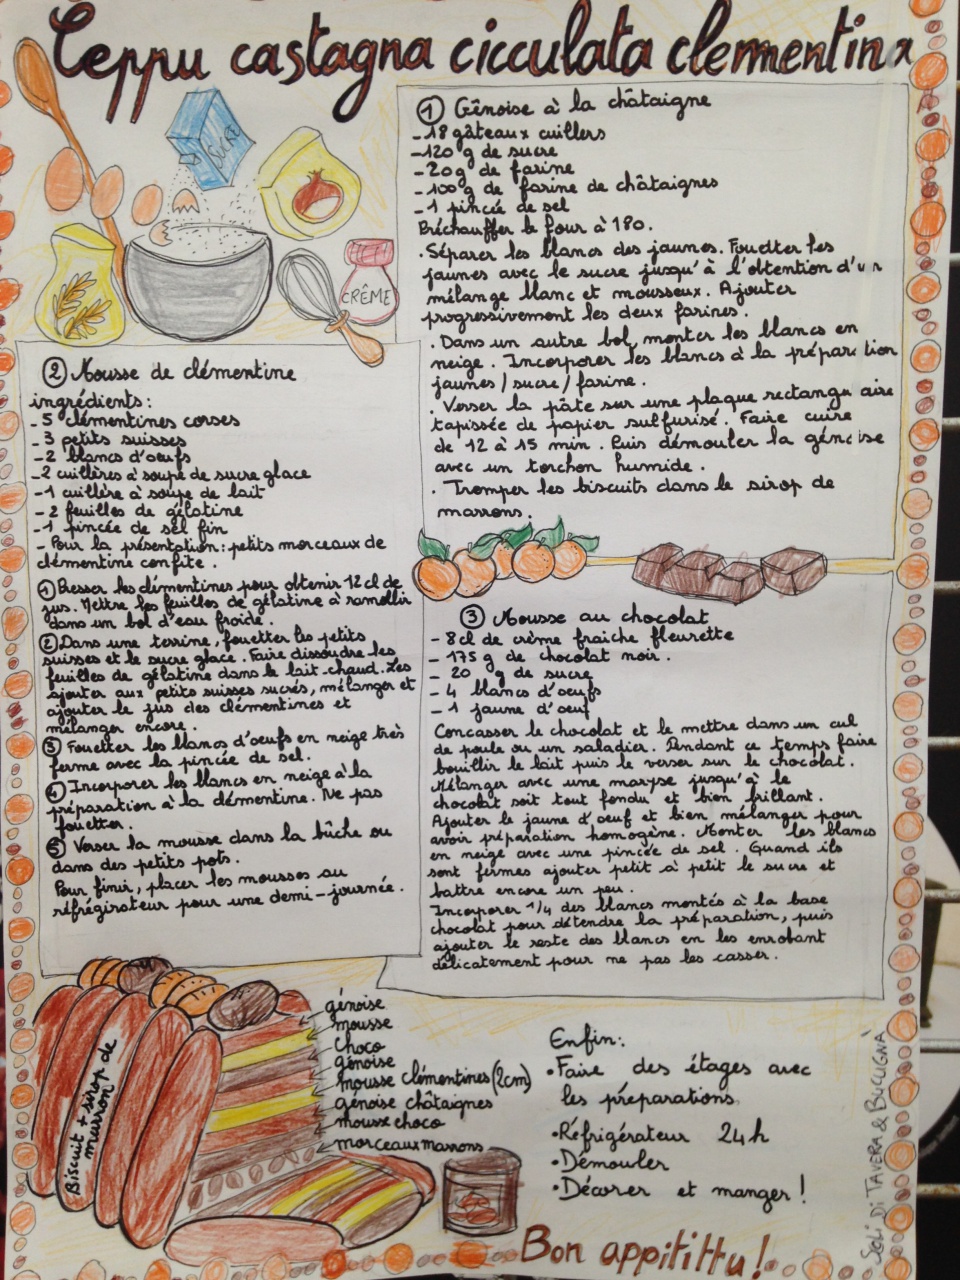 Ceppu castagna cicculata clementina
SUCRE
CRÊME
① Gênoise à la châtaigne
- 18 gâteaux cuillers
- 120 g de sucre
- 20g de farine
- 100g de farine de châtaignes
- 1 pincée de sel
Préchauffer le four à 180.
. Séparer les blancs des jaunes. Fouetter les
jaunes avec le sucre jusqu'à l'obtention d'un
mélange blanc et mousseux. Ajouter
progressivement les deux farines.
. Dans un autre bol, monter les blancs en
neige. Incorporer les blancs à la préparation
jaunes / sucre / farine.
. Verser la pâte sur une plaque rectangulaire
tapissée de papier sulfurisé. Faire cuire
de 12 à 15 min. Puis démouler la génoise
avec un torchon humide.
. Tremper les biscuits dans le sirop de
marrons.
② Mousse de clémentine
ingrédients:
- 5 clémentines corses
- 3 petits suisses
- 2 blancs d'oeufs
- 2 cuillères à soupe de sucre glace
- 1 cuillère à soupe de lait
- 2 feuilles de gélatine
- 1 pincée de sel fin
- Pour la présentation: petits morceaux de
clémentine confite.
① Presser les clémentines pour obtenir 12 cl de
jus. Mettre les feuilles de gélatine à ramollir
dans un bol d'eau froide.
② Dans une terrine, fouetter les petits
suisses et le sucre glace. Faire dissoudre les
feuilles de gélatine dans le lait chaud. Les
ajouter aux petits suisses sucrés, mélanger et
ajouter le jus des clémentines et
mélanger encore.
③ Fouetter les blancs d'oeufs en neige très
ferme avec la pincée de sel.
④ Incorporer les blancs en neige à la
préparation à la clémentine. Ne pas
fouetter.
⑤ Verser la mousse dans la bûche ou
dans des petits pots.
Pour finir, placer les mousses au
réfrégirateur pour une demi-journée.
③ Mousse au chocolat
- 8cl de crème fraiche fleurette
- 175 g de chocolat noir.
- 20 g de sucre
- 4 blancs d'oeufs
- 1 jaune d'oeuf
Concasser le chocolat et le mettre dans un cul
de poule ou un saladier. Pendant ce temps faire
bouillir le lait puis le verser sur le chocolat.
Mélanger avec une maryse jusqu'à le
chocolat soit tout fondu et bien brillant.
Ajouter le jaune d'oeuf et bien mélanger pour
avoir préparation homogène. Monter les blancs
en neige avec une pincée de sel. Quand ils
sont fermes ajouter petit à petit le sucre et
battre encore un peu.
Incorporer 1/4 des blancs montés à la base
chocolat pour détendre la préparation, puis
ajouter le reste des blancs en les enrobant
délicatement pour ne pas les casser.
Biscuit + sirop de
marron
génoise
mousse
choco
génoise
mousse clémentines (2cm)
génoise châtaignes
mousse choco
morceaux marrons
Enfin:
• Faire des étages avec
les préparations
• Réfrigérateur 24h
• Démouler
• Décorer et manger !
Bon appitittu !
SCOLI DI TAVERA & BUCUGNÀ